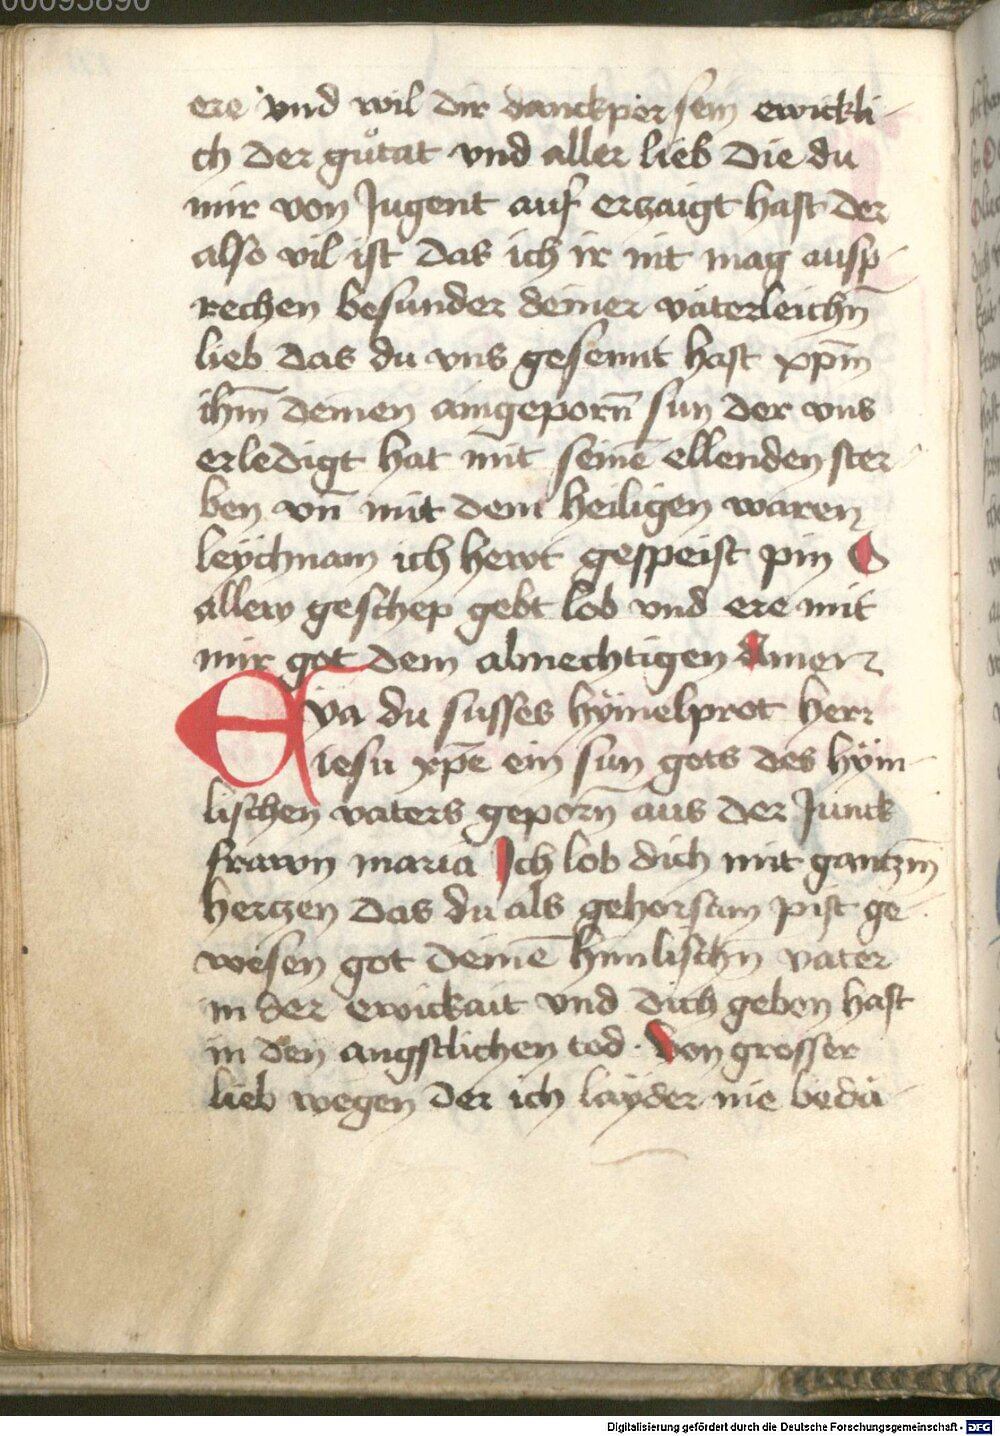 00095890
ere vnd wil dir danckper sein ewickli-
ch der gůtat vnd aller lieb die du
mir von Jugent auf erzaigt hast der
also vil ist das ich ir nit mag ausp-
rechen besunder deiner väterleichn̄
lieb das du vns gesennt hast xp̄m
ih̄m deinen aingeporn̄ sun der vns
erledigt hat mit seinē ellenden ster-
ben vn̄ mit dem heiligen waren
leychnam ich hewt gespeist pin O
allew geschep gebt lob vnd ere mit
mir got dem almechtigen Amen
Eya du susses hymelprot herr
iesu xp̄e ein sun gots des hÿm-
lischen vaters geporn̄ aus der Junck
frawn maria Ich lob dich mit gantzm̄
hertzen das du als gehorsam pist ge-
wesen got deinē himlischn̄ vater
in der ewickait vnd dich geben hast
in den angstlichen tod. Von grosser
lieb wegen der ich layder nie beda-
Digitalisierung gefördert durch die Deutsche Forschungsgemeinschaft - DFG